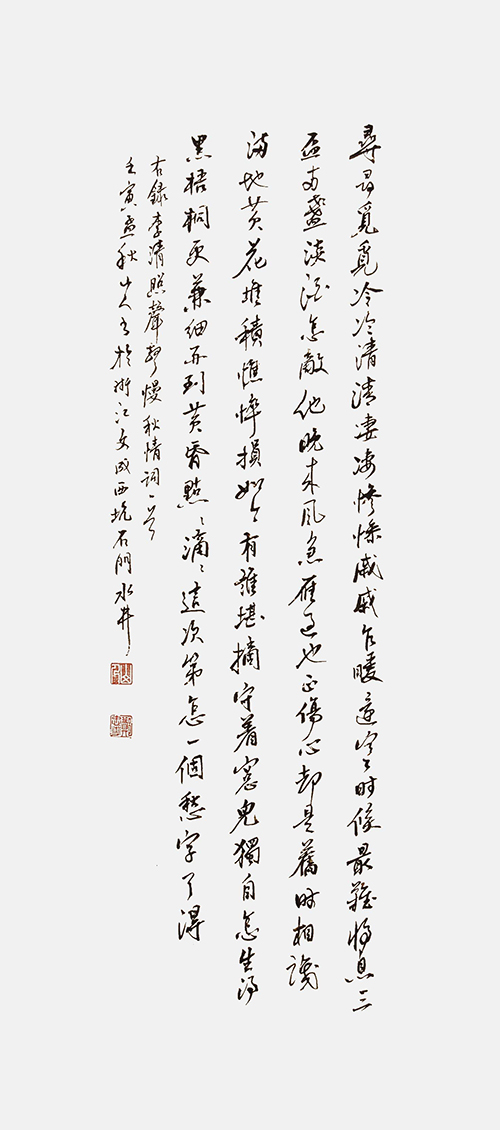 尋尋覓覓冷冷清清凄凄慘慘戚戚乍暖還寒時候最難將息三
盃两盞淡酒怎敵他晚来風急雁過也正傷心却是舊時相識
满地黄花堆積憔悴損如今有誰堪摘守着窓兒獨自怎生得
黑梧桐更兼细雨到黄昏點〻滴〻這次第怎一個愁字了得
右錄李清照聲聲慢秋情詞一首
壬寅孟秋山人书於浙江文成西坑石門水井